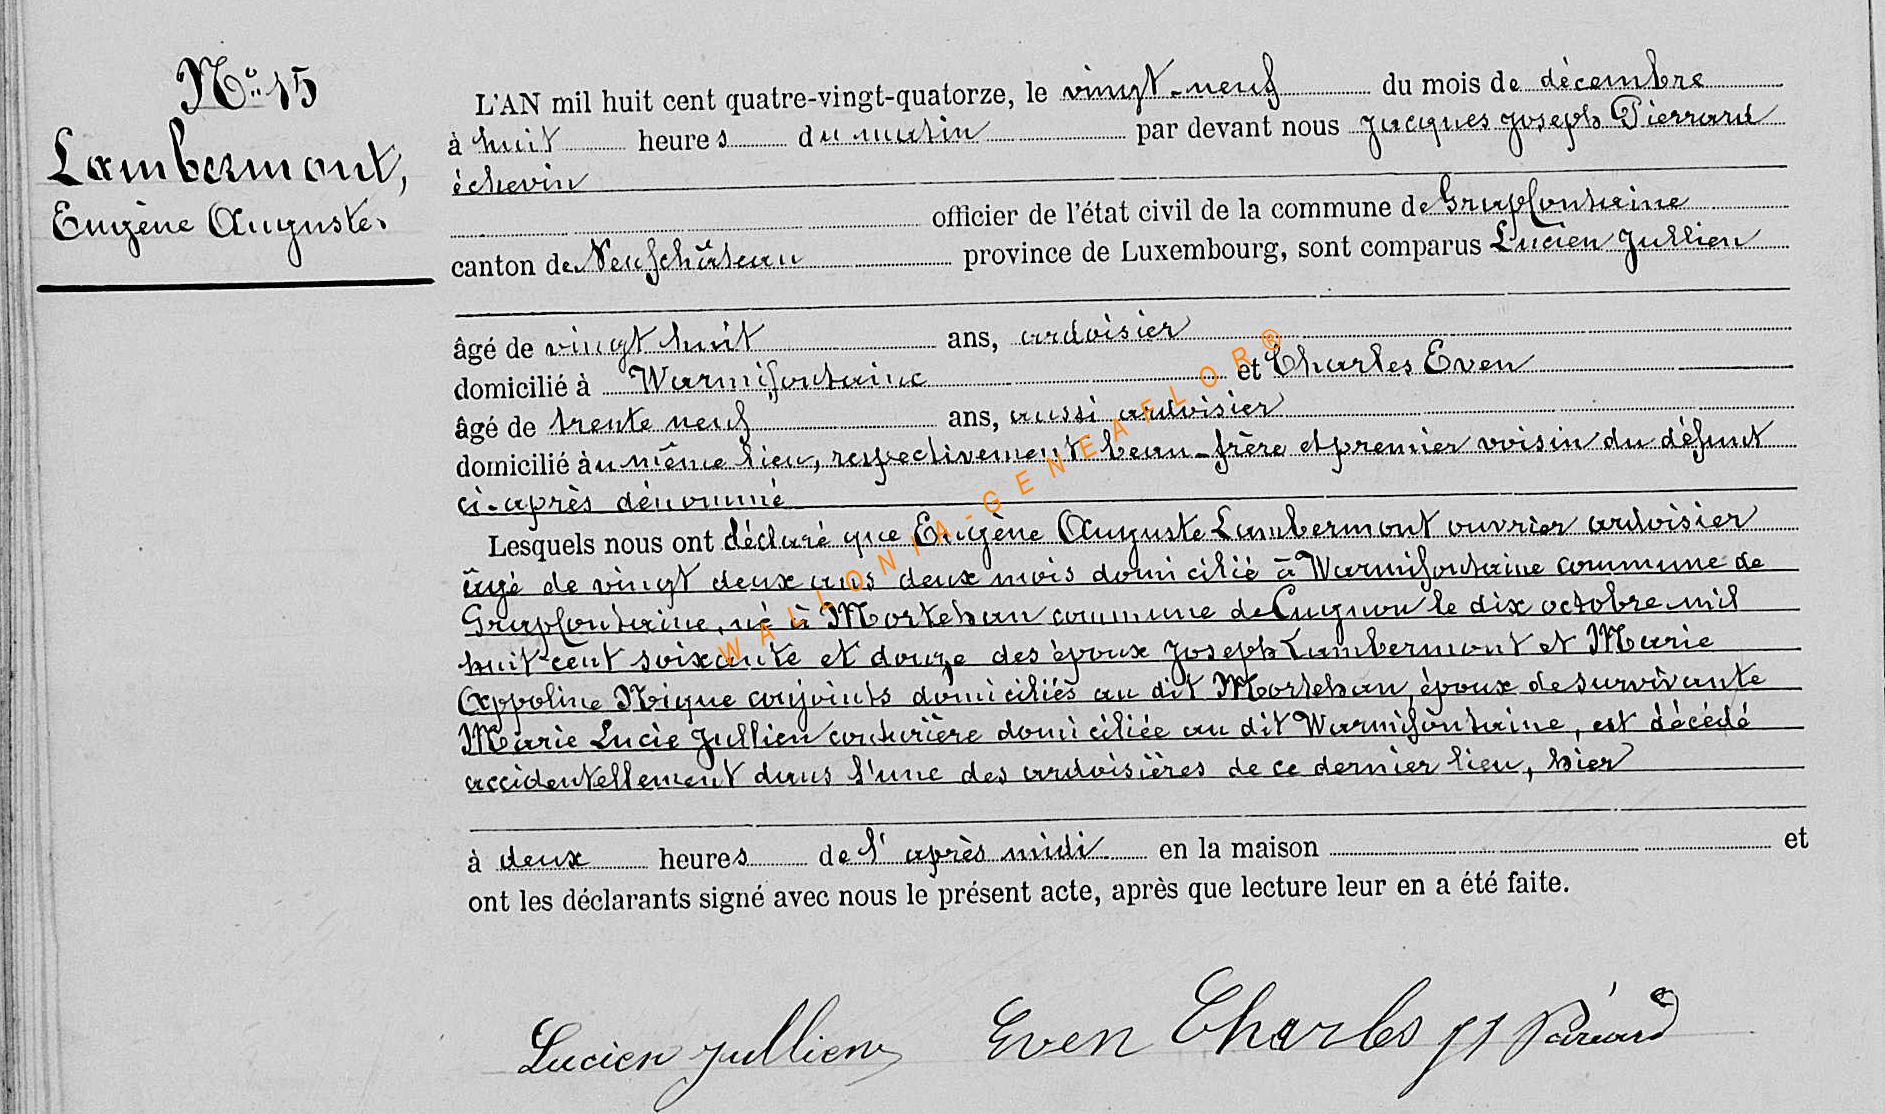 No 15
Lambermont,
Eugène Auguste.
L'AN mil huit cent quatre-vingt-quatorze, le vingt-neuf du mois de décembre
à huit heures du matin par devant nous Jacques Joseph Pierrard
échevin
officier de l'état civil de la commune de Grapfontaine
canton de Neufchâteau province de Luxembourg, sont comparus Lucien Jullien
âgé de vingt huit ans, ardoisier
domicilié à Warmifontaine et Charles Even
âgé de trente neuf ans, aussi ardoisier
domicilié au même lieu, respectivement beau-frère et premier voisin du défunt
ci-après dénommé
Lesquels nous ont déclaré que Eugène Auguste Lambermont ouvrier ardoisier
âgé de vingt deux ans deux mois domicilié à Warmifontaine commune de
Grapfontaine, né à Mortehan commune de Cugnon le dix octobre mil
huit cent soixante et douze des époux Joseph Lambermont et Marie
Appoline Nique conjoints domiciliés au dit Mortehan, époux de survivante
Marie Lucie Jullien couturière domiciliée au dit Warmifontaine, est décédé
accidentellement dans l'une des ardoisières de ce dernier lieu, hier
à deux heures de l'après midi en la maison et
ont les déclarants signé avec nous le présent acte, après que lecture leur en a été faite.
Lucien Jullien Even Charles JJ Pierrard
WALLONIA-GENEAFLOR®